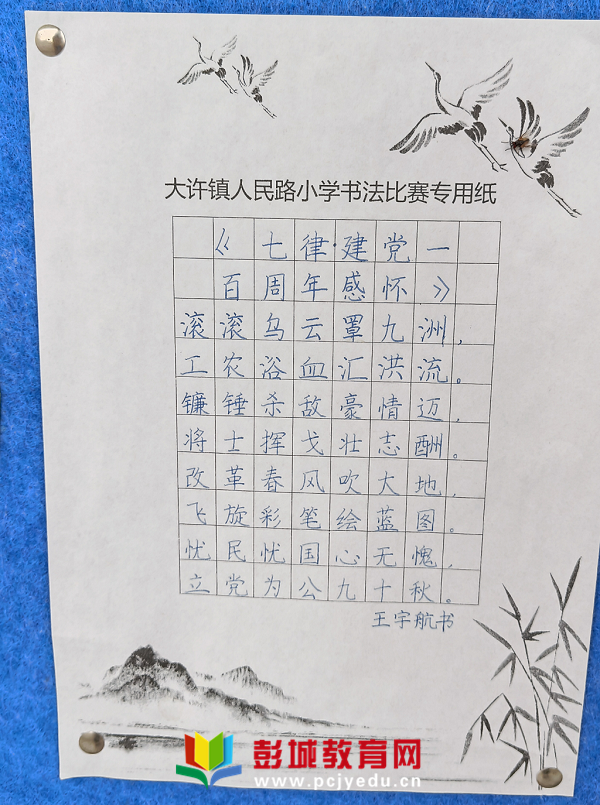 大许镇人民路小学书法比赛专用纸
《七律·建党一
百周年感怀》
滚滚乌云罩九洲，
工农浴血汇洪流。
镰锤杀敌豪情迈，
将士挥戈壮志酬。
改革春风吹大地，
飞旋彩笔绘蓝图。
忧民忧国心无愧，
立党为公九十秋。
王宇航书
彭城教育网
www.pcjyedu.cn